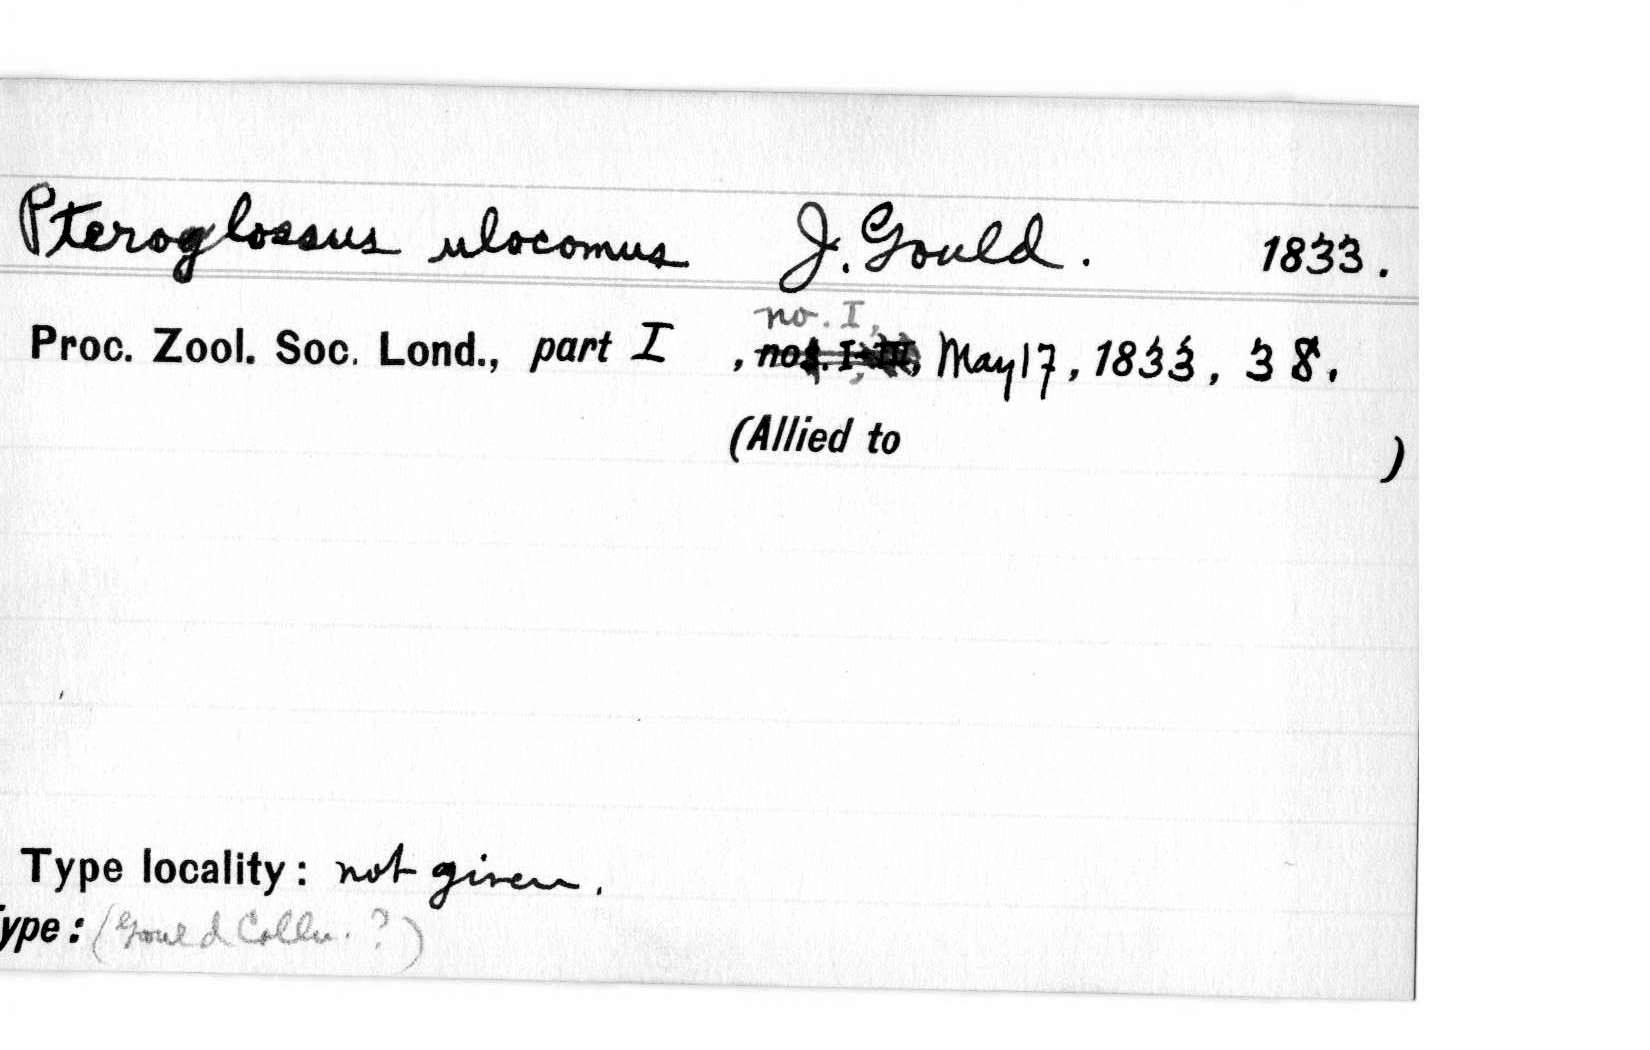 Pteroglossus ulocomus J. Gould. 1833.
no. I,
Proc. Zool. Soc. Lond., part I , nos. I-III, May 17, 1833, 38.
(Allied to )
Type locality: not given.
ype: (Gould Colln. ?)